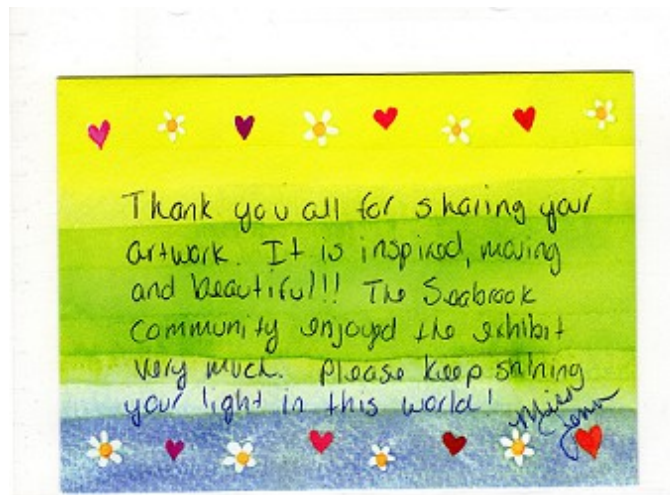 Thank you all for sharing your
artwork. It is inspired, moving
and beautiful!!! The Seabrook
community enjoyed the exhibit
very much. Please keep shining
your light in this world!
Miss
Jenn